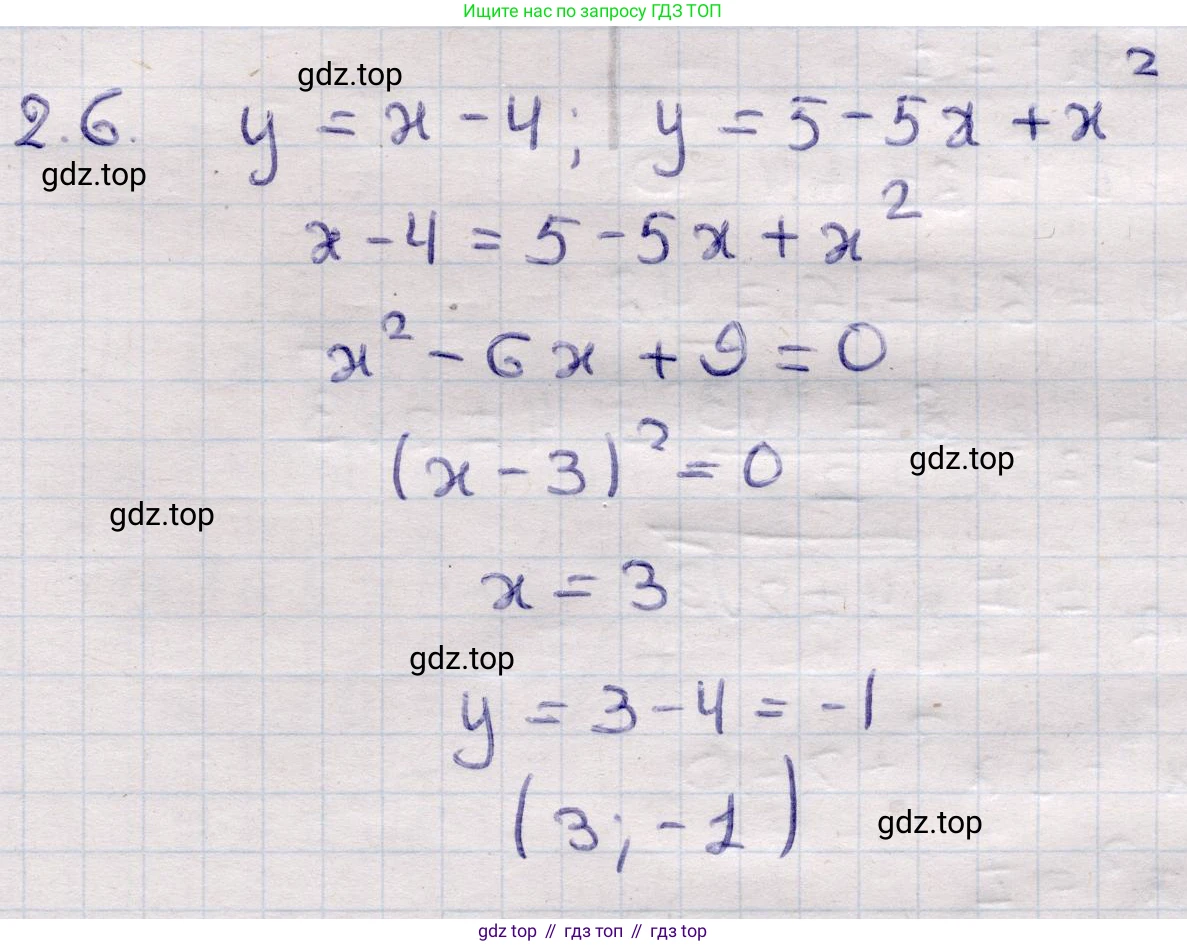 Ищите нас по запросу ГДЗ ТОП
gdz.top
2.6. y = x - 4; y = 5 - 5x + x²
gdz.top
x - 4 = 5 - 5x + x²
x² - 6x + 9 = 0
(x - 3)² = 0
gdz.top
gdz.top
x = 3
gdz.top
y = 3 - 4 = -1
(3; -1)
gdz.top
gdz top // гдз топ // gdz top